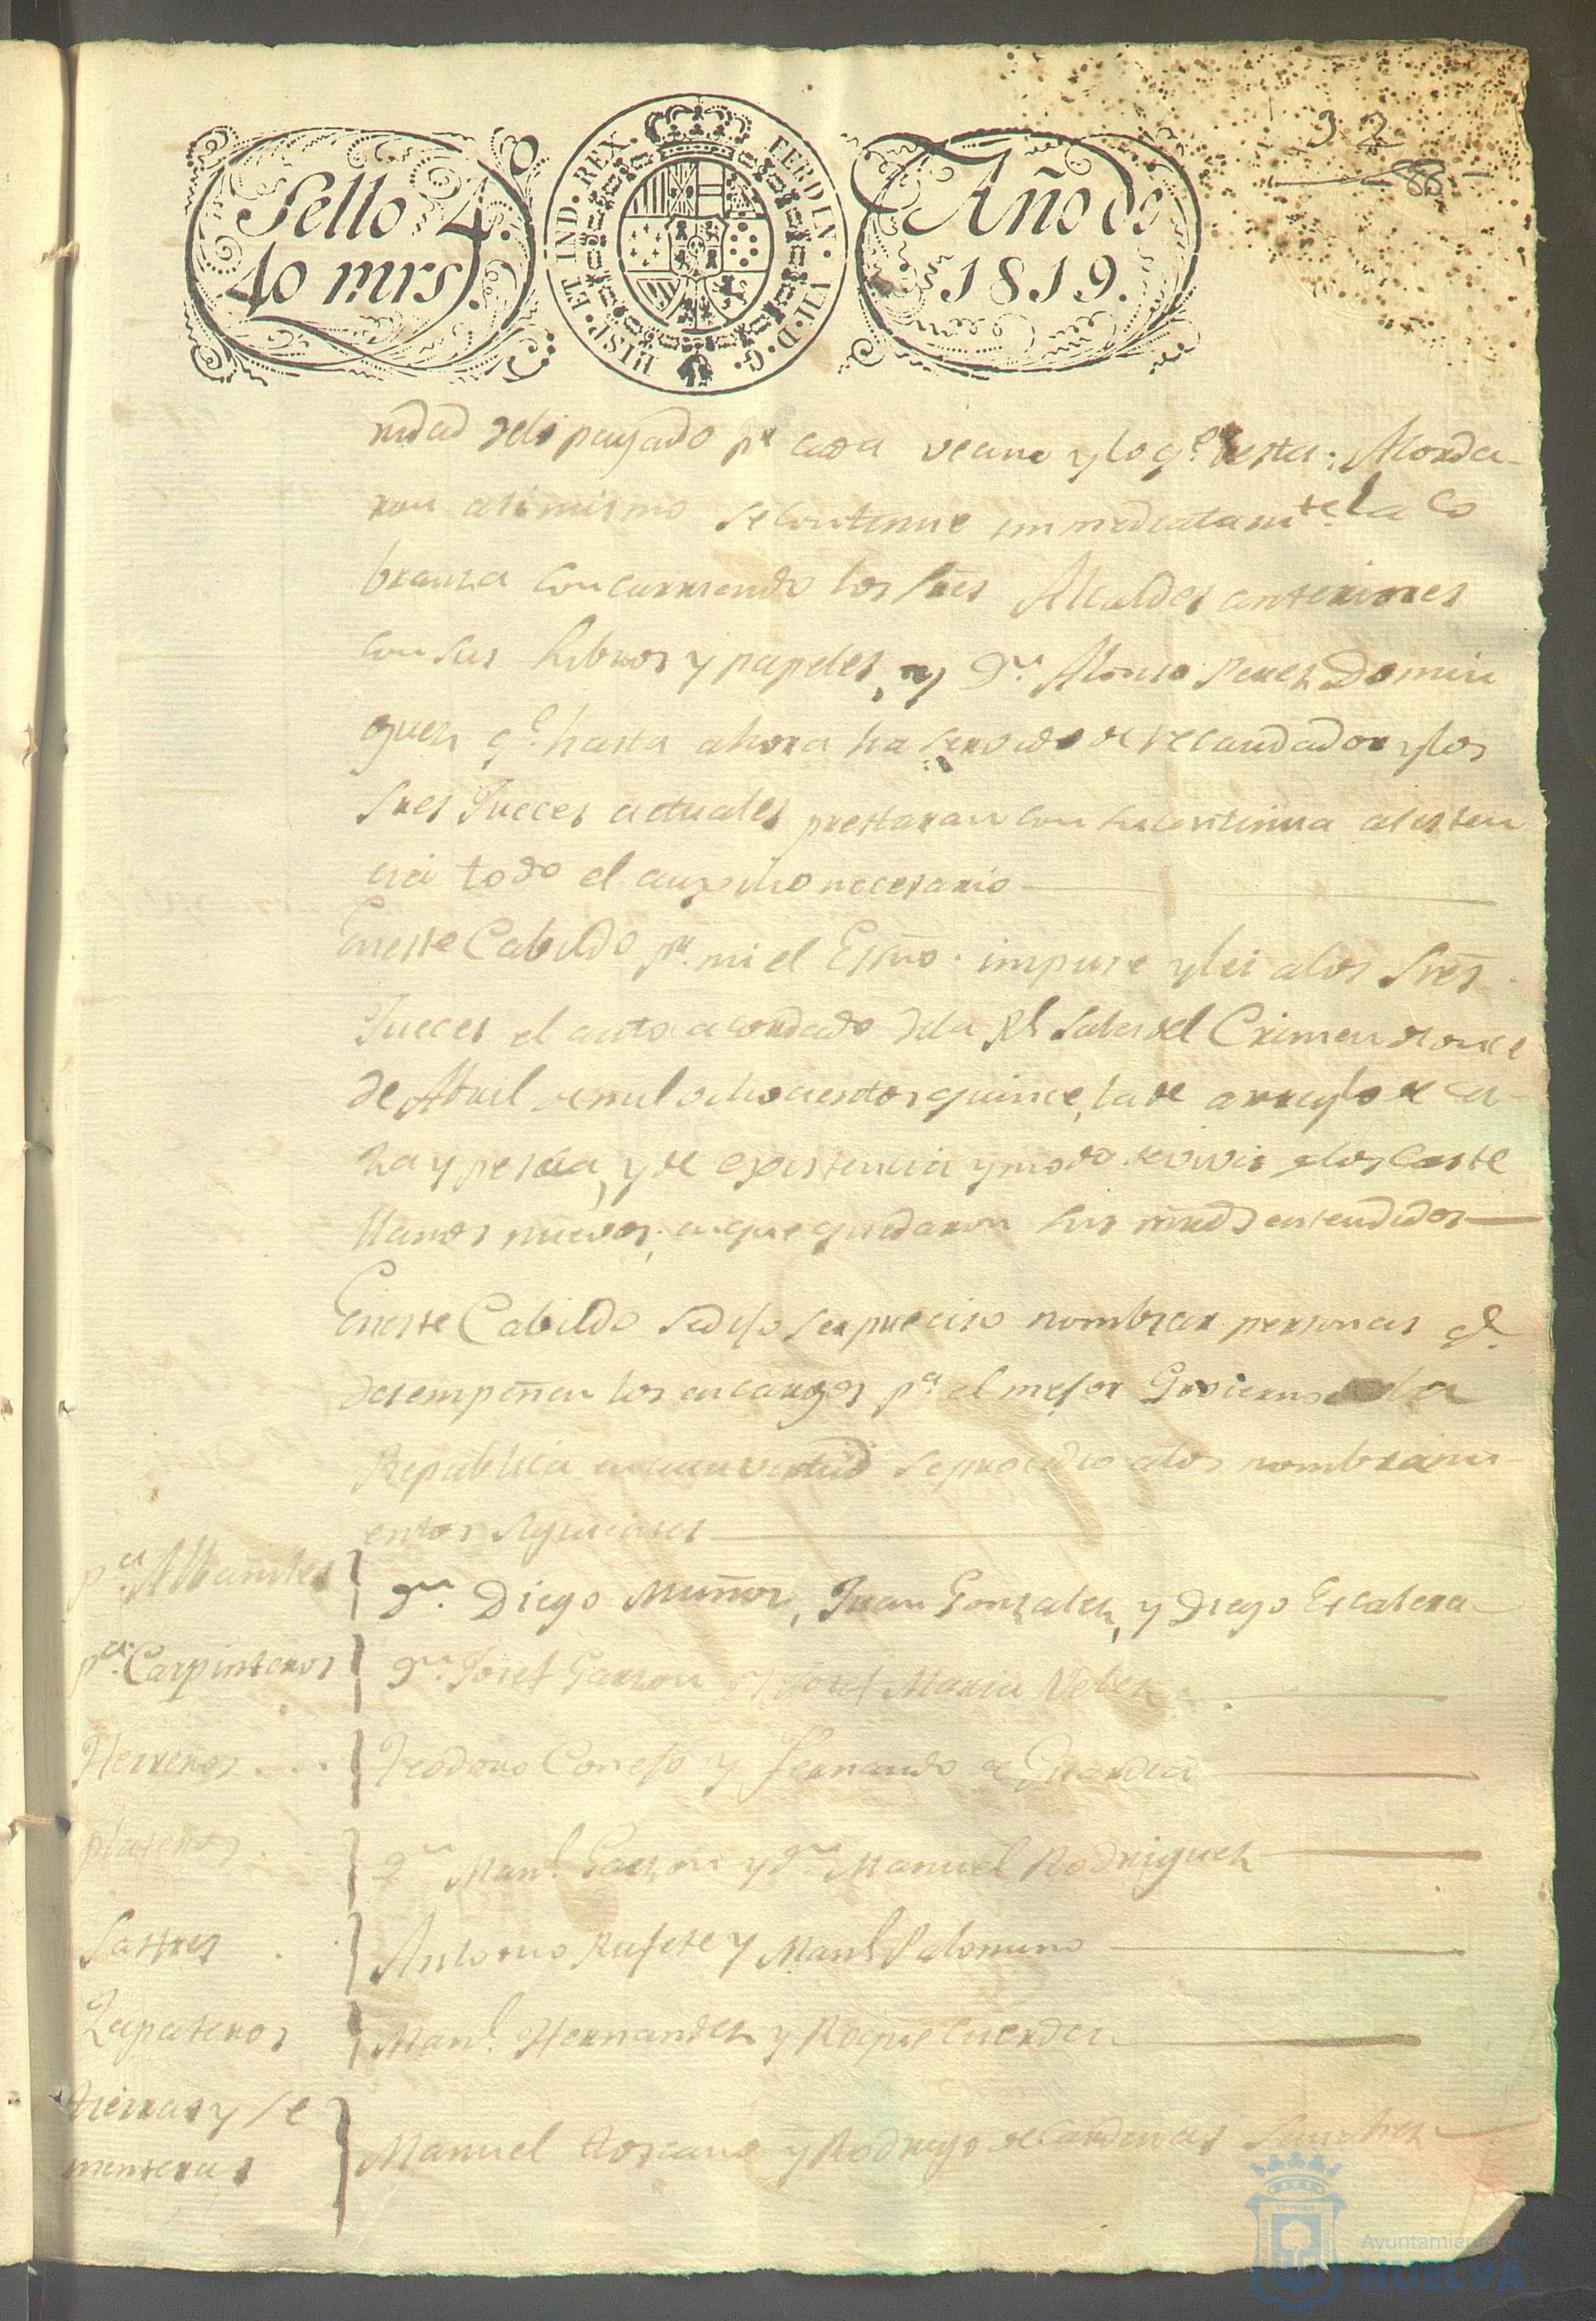 Sello 4.º
40 mrs.
HISP. ET IND. REX. FERDIN. VII. D. G.
Año de
1819.
32
ridad delo pagado pr. cada vecino y lo qe. resta; Acorda-
ron asimismo se continue immediatamte. la co
branza concurriendo los Sres Alcaldes anteriores
con sus Libros y papeles, y Dn. Alonso Perez Domin
guez qe. hasta ahora ha servido de recaudador y los
Sres Jueces actuales prestaran con su continua asisten
cia todo el auxilio necesario
En este Cabildo pr. mi el Essno. impuse y lei a los Sres
Jueces el auto acordado dela Rl. Sala del Crimen de once
de Abril de mil ochocientos quince, la de arreglo de ca-
za y pesca, y de existencia y modo de vivir de los Caste
llanos nuevos; en que quedaron sus mrds entendidos
En este Cabildo se dijo ser preciso nombrar personas qe.
desempeñen los encargos pa. el mejor Govierno de la
Republica en cuia virtud se procedio a los nombrami-
entos siguientes
pa. Albañiles } Dn. Diego Muñoz, Juan Gonzalez, y Diego Escalera
pa. Carpinteros } Dn. Josef Garzon y Josef Maria Velez
Herreros } Teodoro Conejo y Fernando de Guardia
plateros } Dn. Manl. Garzon y Dn. Manuel Rodriguez
Sastres } Antonio Rufete y Manl. Palomino
Zapateros } Manl. Hernandez y Roque Cuerda
tierras y se
menteras } Manuel Toscano y Rodrigo de Cardenas Sanchez
Ayuntamiento de
HUELVA